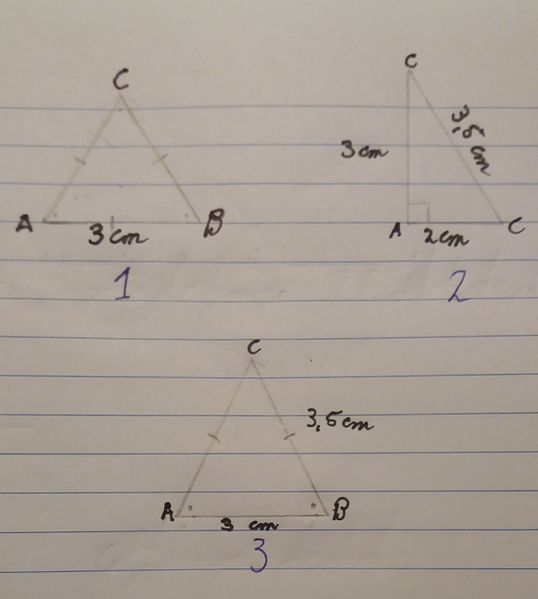 C
A
B
3 cm
1
C
3 cm
3,5 cm
A
2 cm
C
2
C
3,5 cm
A
B
3 cm
3